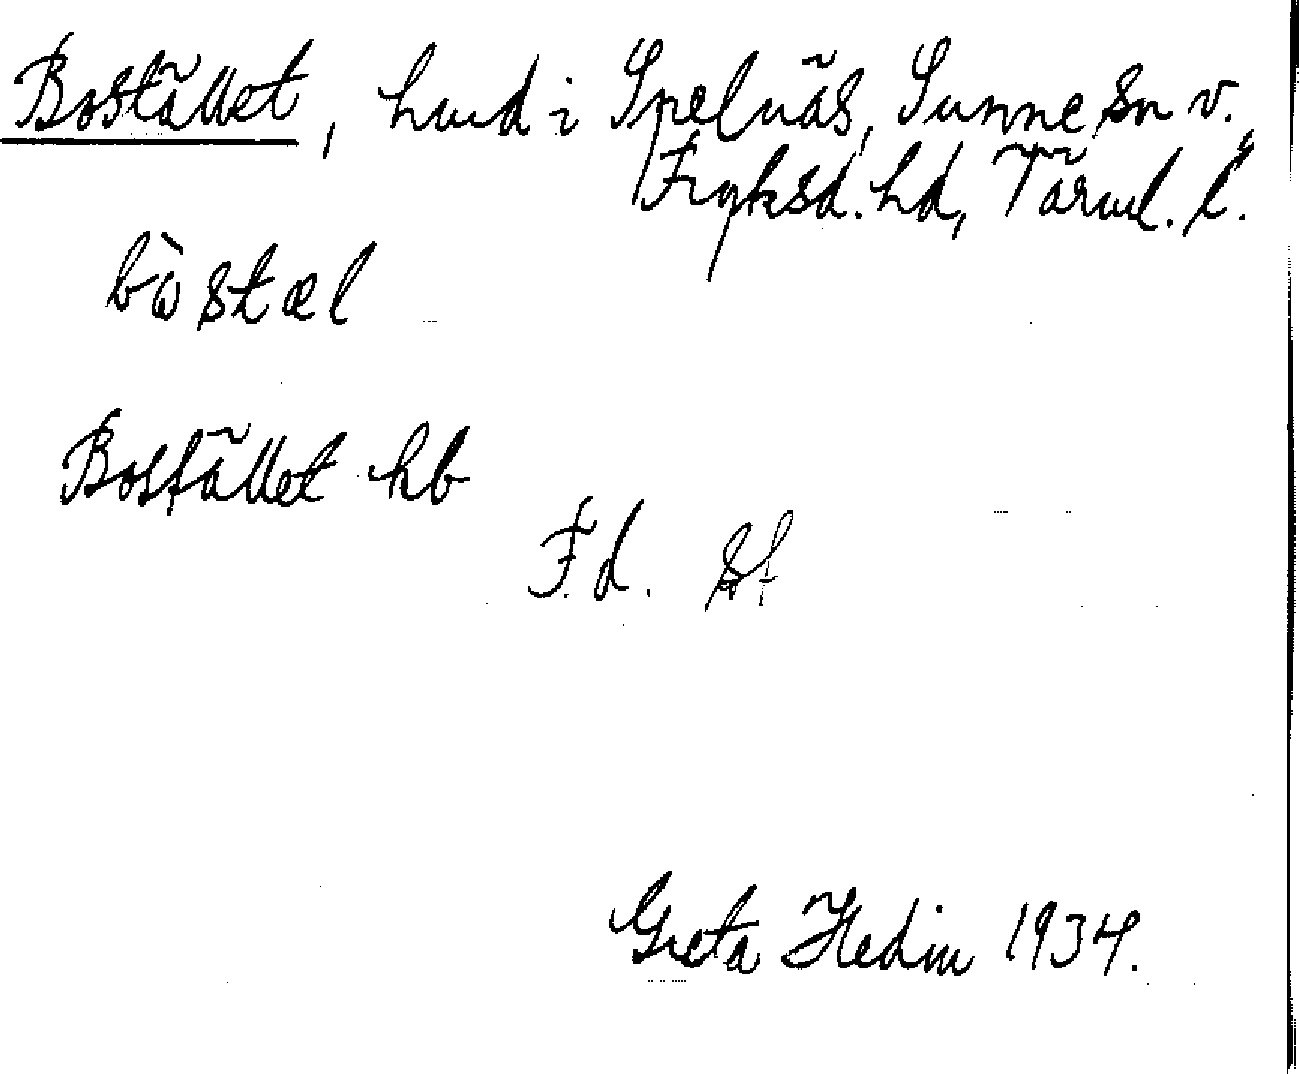 Bostället, hmd i Spelnäs, Sunne sn v.
Fryksd. hd, Värml. l.
bòstæl
Bostället hb
F.d. 
Greta Hedin 1934.